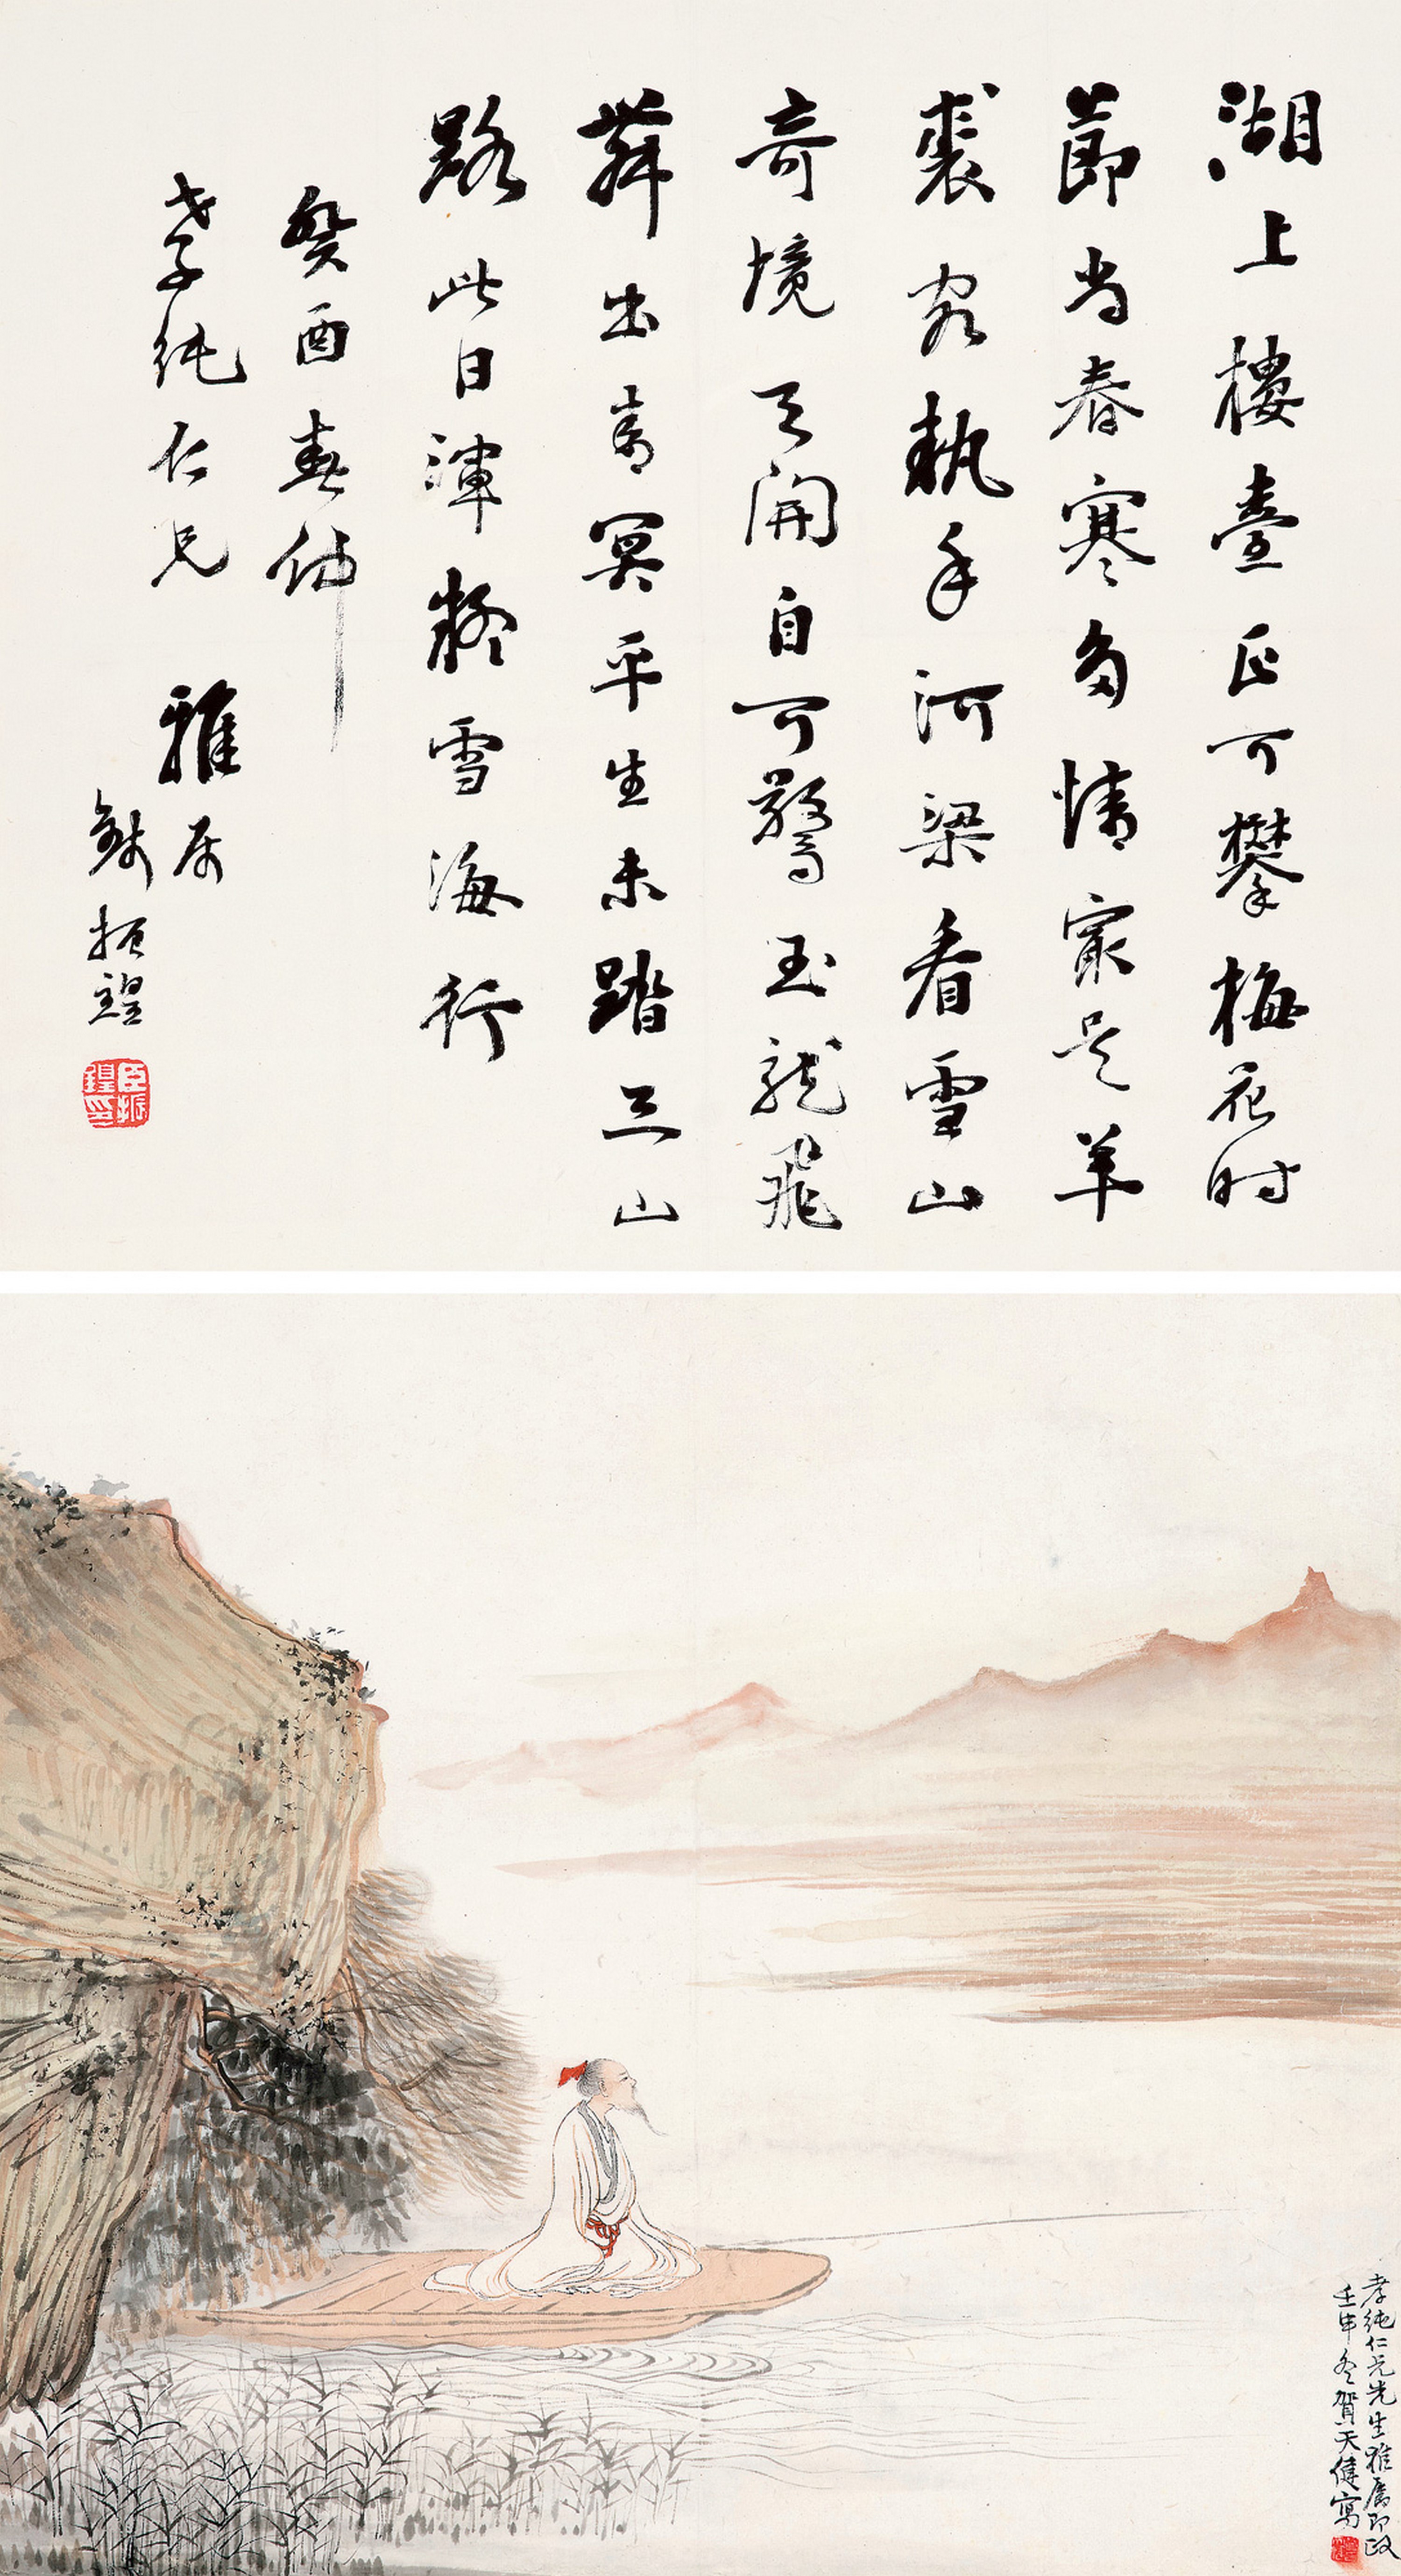 湖上樓臺正可攀梅花时
節尚春寒多情最是羊
裘客執手河梁看雪山
奇境天開自可驚玉龍飛
舞出青冥平生未踏三山
路此日渾疑雪海行
癸酉春仲
孝純仁兄 雅属
錢振鍠
臣振鍠印
孝純仁兄先生雅屬即政
壬申冬賀天健寫